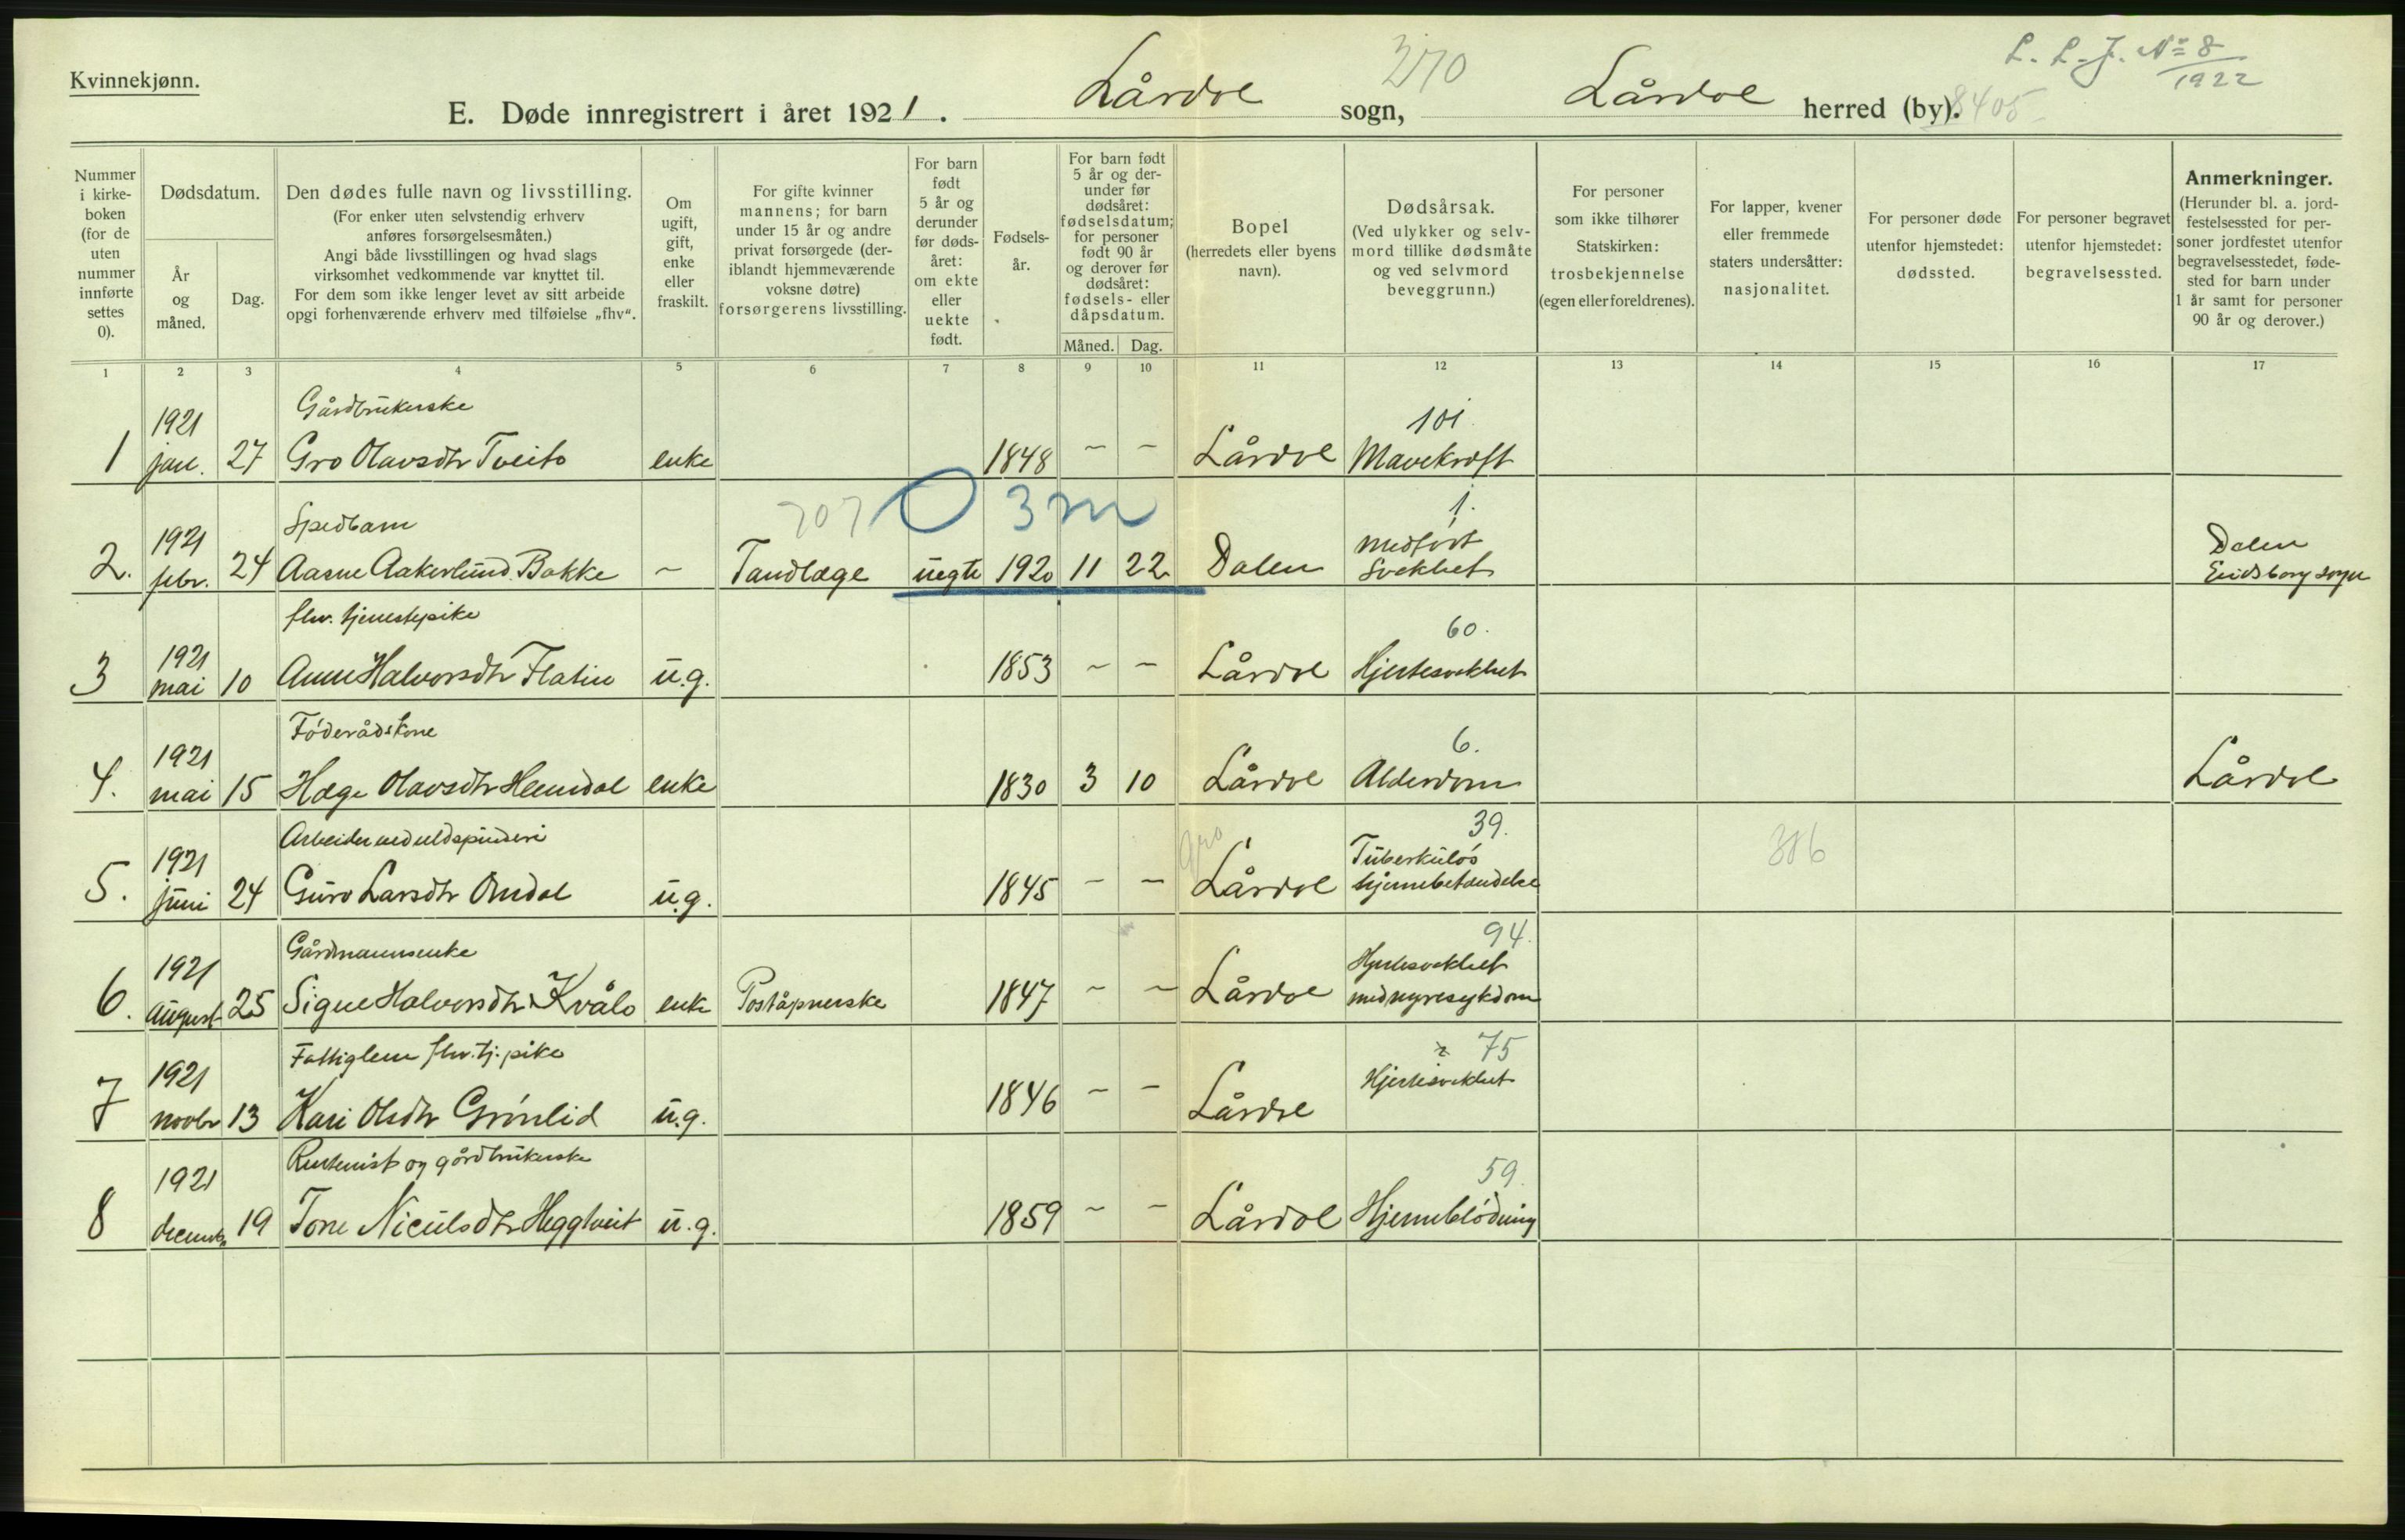 Kvinnekjønn.
L. L. J. № 8
1922
E. Døde innregistrert i året 1921. Lårdal sogn, Lårdal herred (by).
270
8405
Nummer i kirke-boken (for de uten nummer innførte settes 0).
Dødsdatum.
År og måned.
Dag.
Den dødes fulle navn og livsstilling.
(For enker uten selvstendig erhverv anføres forsørgelsesmåten.)
Angi både livsstillingen og hvad slags virksomhet vedkommende var knyttet til.
For dem som ikke lenger levet av sitt arbeide opgi forhenværende erhverv med tilføielse „fhv“.
Om ugift, gift, enke eller fraskilt.
For gifte kvinner mannens; for barn under 15 år og andre privat forsørgede (der-iblandt hjemmeværende voksne døtre) forsørgerens livsstilling.
For barn født 5 år og derunder før døds-året: om ekte eller uekte født.
Fødsels-år.
For barn født 5 år og der-under før dødsåret: fødselsdatum; for personer født 90 år og derover før dødsåret: fødsels- eller dåpsdatum.
Måned.
Dag.
Bopel
(herredets eller byens navn).
Dødsårsak.
(Ved ulykker og selv-mord tillike dødsmåte og ved selvmord beveggrunn.)
For personer som ikke tilhører Statskirken: trosbekjennelse (egen eller foreldrenes).
For lapper, kvener eller fremmede staters undersåtter: nasjonalitet.
For personer døde utenfor hjemstedet: dødssted.
For personer begravet utenfor hjemstedet: begravelsessted.
Anmerkninger.
(Herunder bl. a. jord-festelsessted for per-soner jordfestet utenfor begravelsesstedet, føde-sted for barn under 1 år samt for personer 90 år og derover.)
1 2 3 4 5 6 7 8 9 10 11 12 13 14 15 16 17
Gårdbrukerske 101.
1 1921 jan. 27 Gro Olavsdtr Tveito enke 1848 – – Lårdal Mavekræft
Spedbarn 707 0 3 m 1.
2. 1921 febr. 24 Aasne Aakerlund Bakke – Tandlæge uegte 1920 11 22 Dalen medfødt svakhet Dalen Eidsborg sogn
fhv. tjenestepike 60.
3 1921 mai 10 Anne Halvorsdtr Flatin u.g. 1853 – – Lårdal Hjertesvakhet
Føderådskone 6.
4. 1921 mai 15 Hæge Olavsdtr Heimdal enke 1830 3 10 Lårdal Alderdom Lårdal
Arbeider ved uldspinderi 39.
5. 1921 juni 24 Guro Larsdtr Omdal u.g. 1845 – – Lårdal Tuberkuløs hjernebetændelse 386
Gårdmannsenke 94.
6. 1921 august 25 Signe Halvorsdtr Kvålo enke Poståpnerske 1847 – – Lårdal Hjertesvakhet med nyresykdom
Fattiglem fhv. tj. pike 75
7 1921 novbr 13 Kari Olsdtr Grønlid u.g. 1846 – – Lårdal Hjertesvakhet
Rentenist og gårdbrukerske 59.
8 1921 decembr. 19 Tone Niculsdtr Heggtveit u.g. 1859 – – Lårdal Hjerneblødning